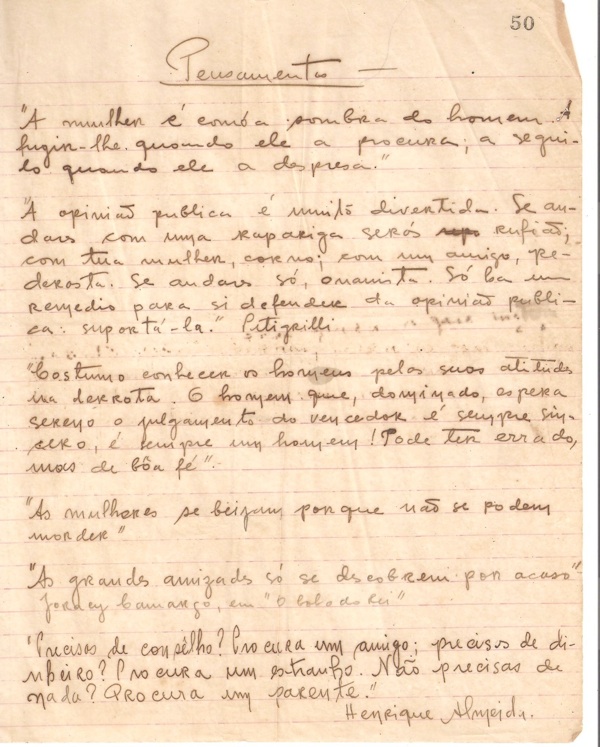 50
Pensamentos
"A mulher é como a sombra do homem. A
fugir-lhe quando ele a procura; a segui-
lo quando ele a despresa."
"A opinião publica é muito divertida. Se an-
dares com uma rapariga serás rufião;
com tua mulher, corno; com um amigo, pe-
derasta. Se andares só, onanista. Só ha um
remedio para si defender da opinião publi-
ca: suportá-la." Pitigrilli
"Costumo conhecer os homens pelas suas atitudes
na derrota. O homem que, dominado, espera
sereno o julgamento do vencedor é sempre sin-
cero, é sempre um homem! Pode ter errado,
mas de bôa fé".
"As mulheres se beijam porque não se podem
morder"
"As grandes amizades só se descobrem por acaso"
Joracy Camargo, em "O bobo do Rei"
"Precisas de consêlho? Procura um amigo; precisas de di-
nheiro? Procura um estranho. Não precisas de
nada? Procura um parente."
Henrique Almeida.